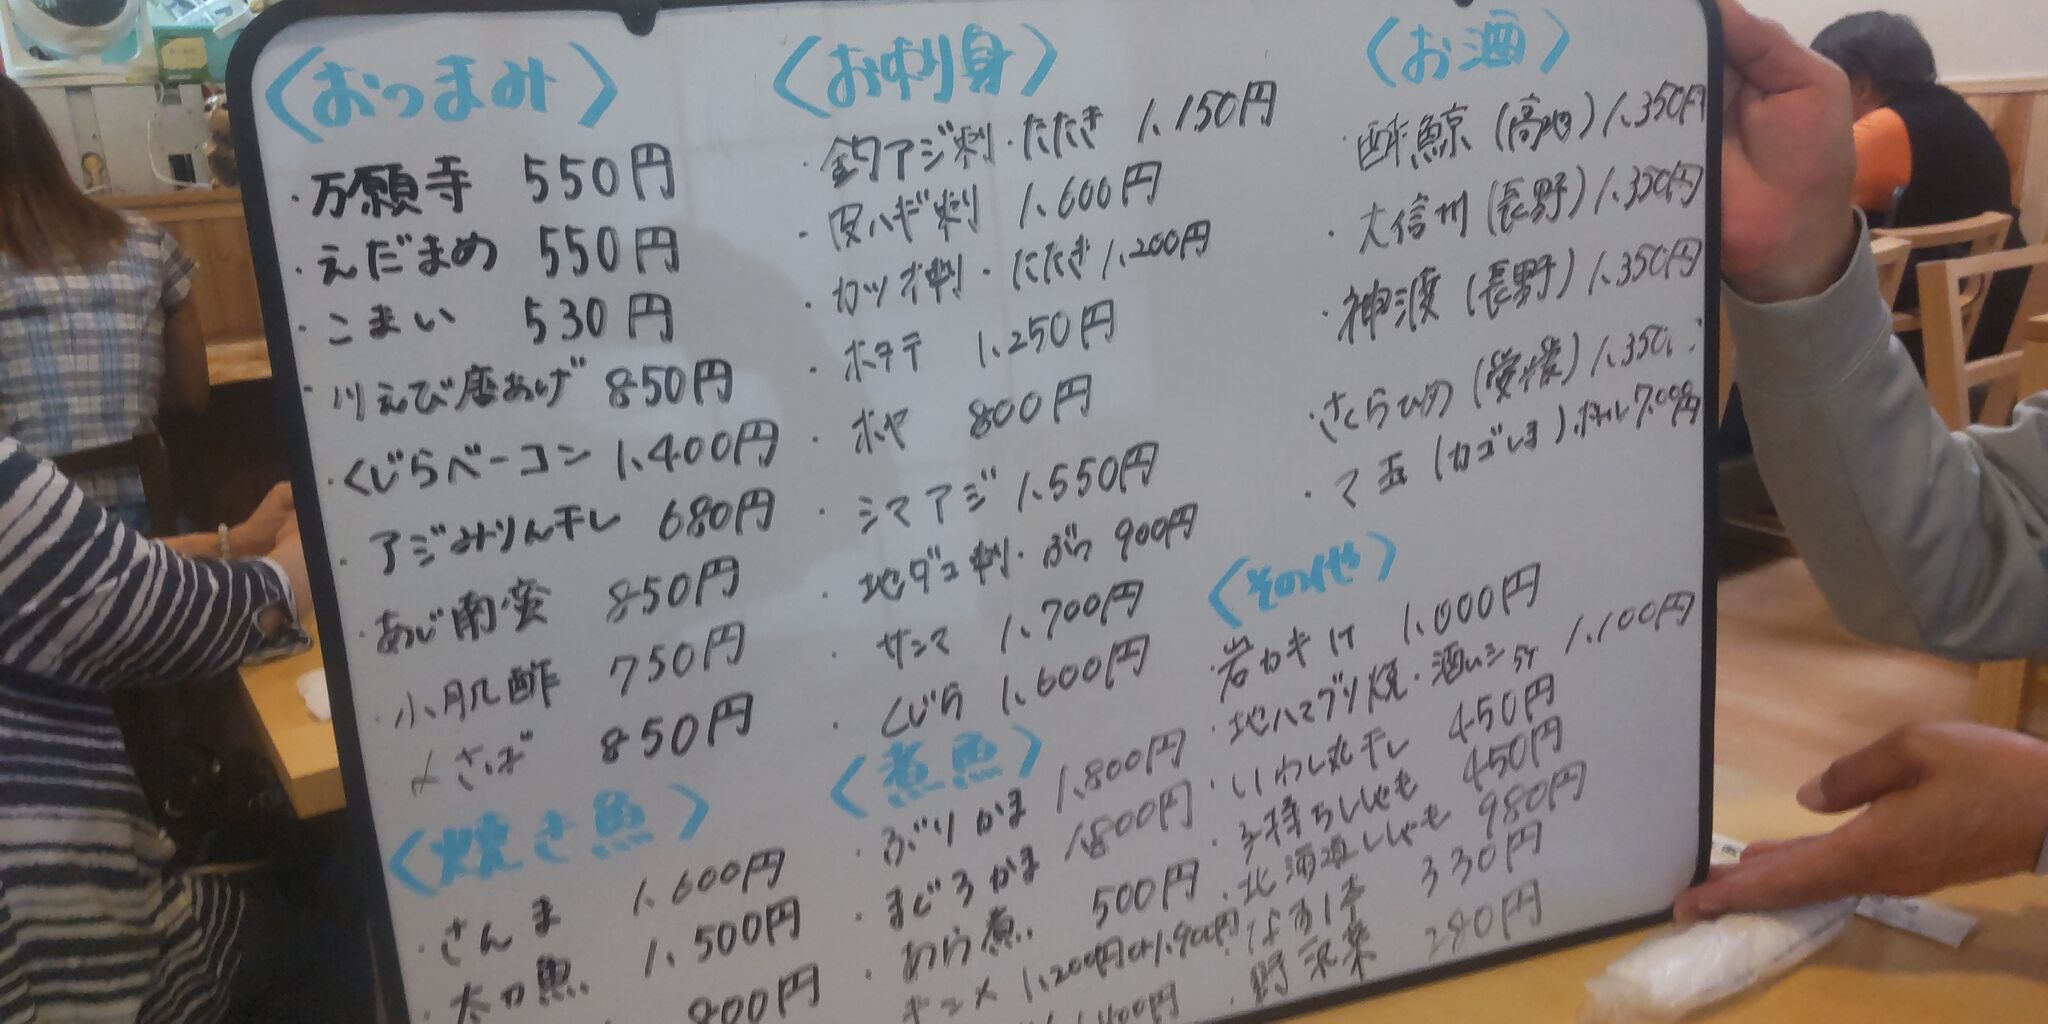 〈おつまみ〉
・万願寺 550円
・えだまめ 550円
・こまい 530円
・川えび唐あげ 850円
・くじらベーコン 1,400円
・アジみりん干し 680円
・あじ南蛮 850円
・小肌酢 750円
・〆さば 850円
〈焼き魚〉
・さんま 1,600円
・太刀魚 1,500円
800円
〈お刺身〉
・釣アジ刺・たたき 1,150円
・皮ハギ刺 1,600円
・カツオ刺・たたき 1,200円
・ホタテ 1,250円
・ホヤ 800円
・シマアジ 1,550円
・地ダコ刺・ぶつ 900円
・サンマ 1,700円
・くじら 1,600円
〈煮魚〉
・ぶりかま 1,800円
・まぐろかま 1,800円
・あら煮 500円
キンメ 1,200円 1,900円
1,400円
〈お酒〉
・酔鯨(高知)1,350円
・大信州(長野)1,350円
・神渡(長野)1,350円
・さくらひめ(愛媛)1,350
(カゴしま)ボトル7,000円
〈その他〉
・岩カキ 1ケ 1,000円
・地ハマグリ焼・酒ムシ 5ケ 1,100円
・いわし丸干し 450円
・子持ちししゃも 450円
・北海道ししゃも 980円
・なす1本 330円
・野沢菜 280円